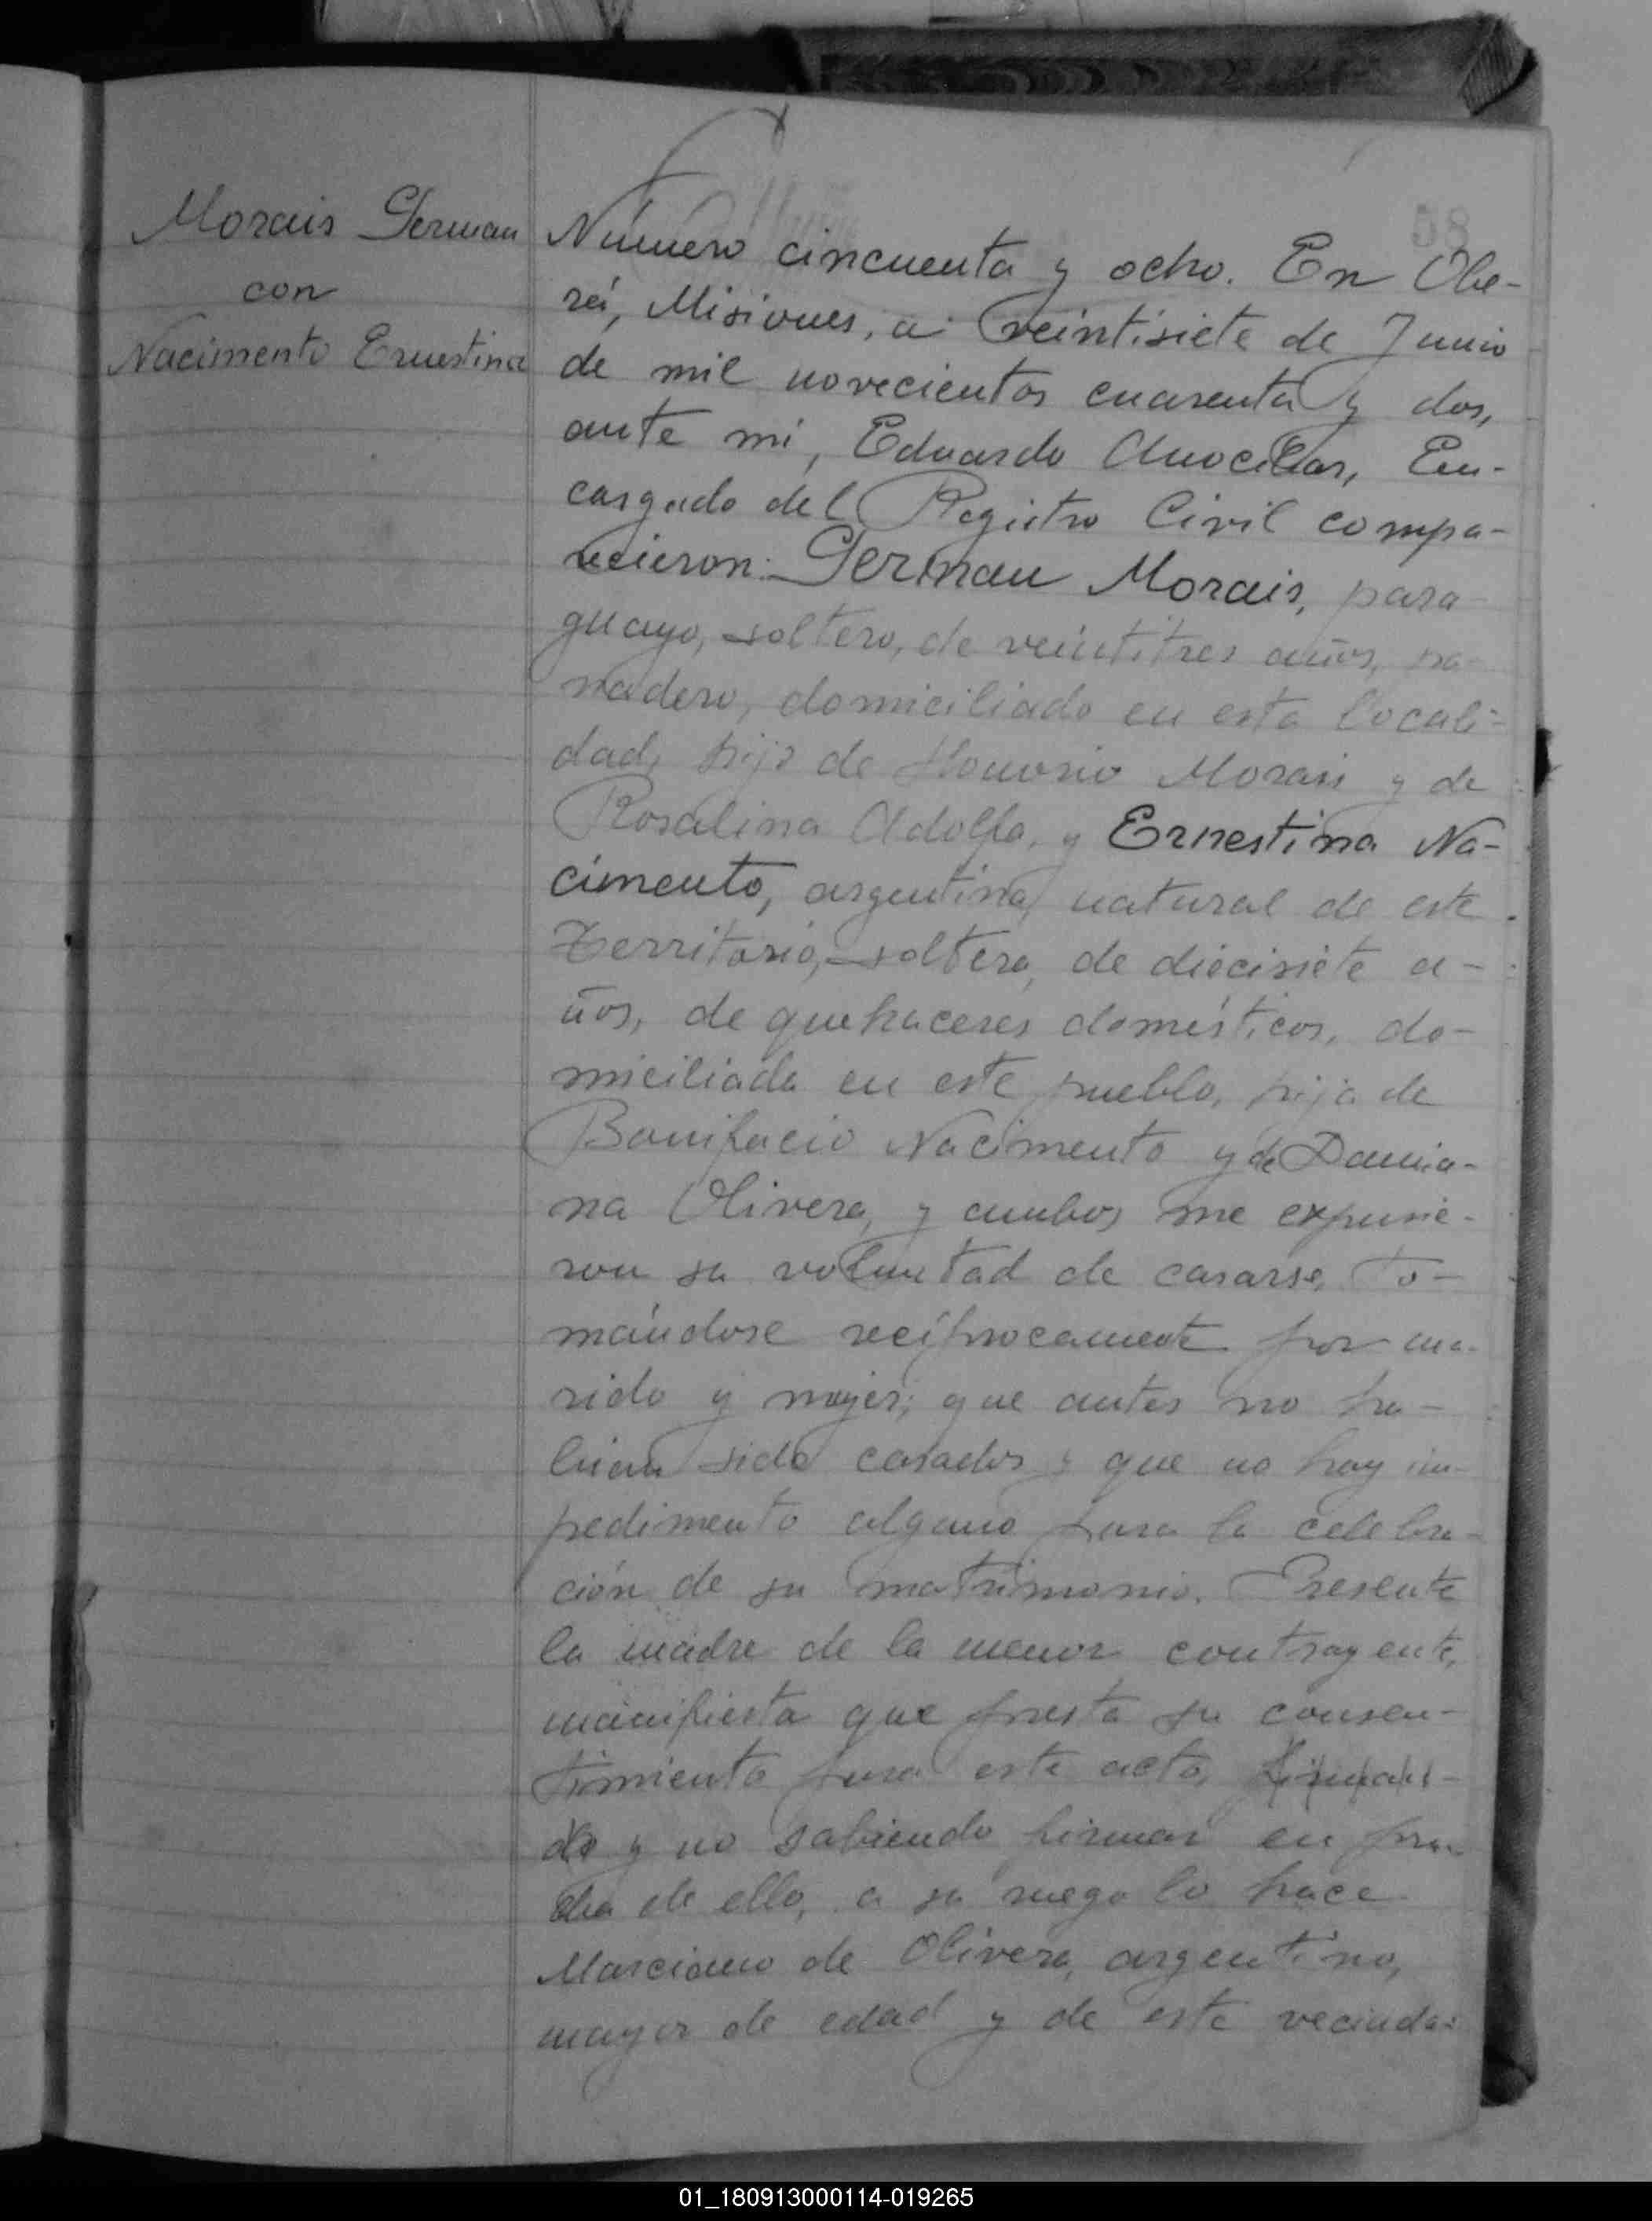 Morais German
con
Nacimento Ernestina
58
Número cincuenta y ocho. En Obe-
rá, Misiones, a veintisiete de Junio
de mil novecientos cuarenta y dos,
ante mí, Eduardo En-
cargado del Registro Civil compa-
recieron: German Morais, para-
guayo, soltero, de veintitres años, pa-
nadero, domiciliado en esta locali-
dad, hijo de Honorio Morais y de
Rosalina Adolfo, y Ernestina Na-
cimento, argentina, natural de este
Territorio, soltera, de diecisiete a-
ños, de quehaceres domésticos, do-
miciliada en este pueblo, hija de
Bonifacio Nacimento y de Damia-
na Olivera, y ambos me expusie-
ron su voluntad de casarse, to-
mándose recíprocamente por ma-
rido y mujer; que antes no ha-
bían sido casados y que no hay im-
pedimento alguno para la celebra-
ción de su matrimonio. Presente
la madre de la menor contrayente,
manifiesta que presta su consen-
timiento para este acto, firman-
do y no sabiendo firmar en prue-
ba de ello, a su ruego lo hace
Marciano de Olivera, argentino,
mayor de edad y de este vecinda-
01_180913000114-019265